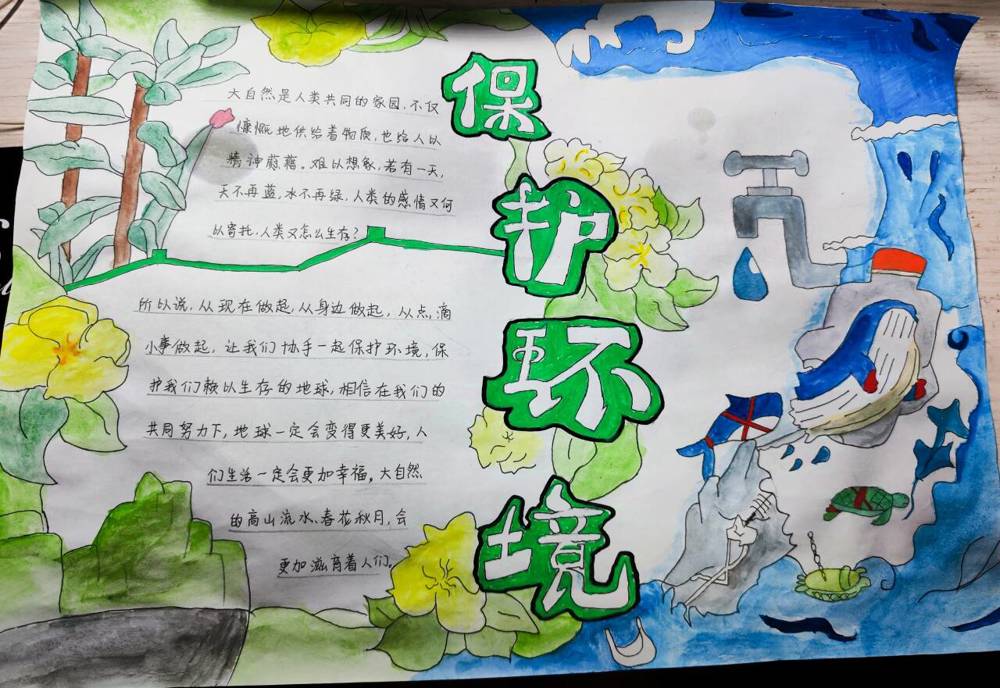 保护环境
大自然是人类共同的家园，不仅
慷慨地供给着物质，也给人以
精神慰藉。难以想象，若有一天，
天不再蓝，水不再绿，人类的感情又何
以寄托，人类又怎么生存？
所以说，从现在做起，从身边做起，从点滴
小事做起，让我们协手一起保护环境，保
护我们赖以生存的地球，相信在我们的
共同努力下，地球一定会变得更美好，人
们生活一定会更加幸福。大自然
的高山流水、春花秋月，会
更加滋育着人们。